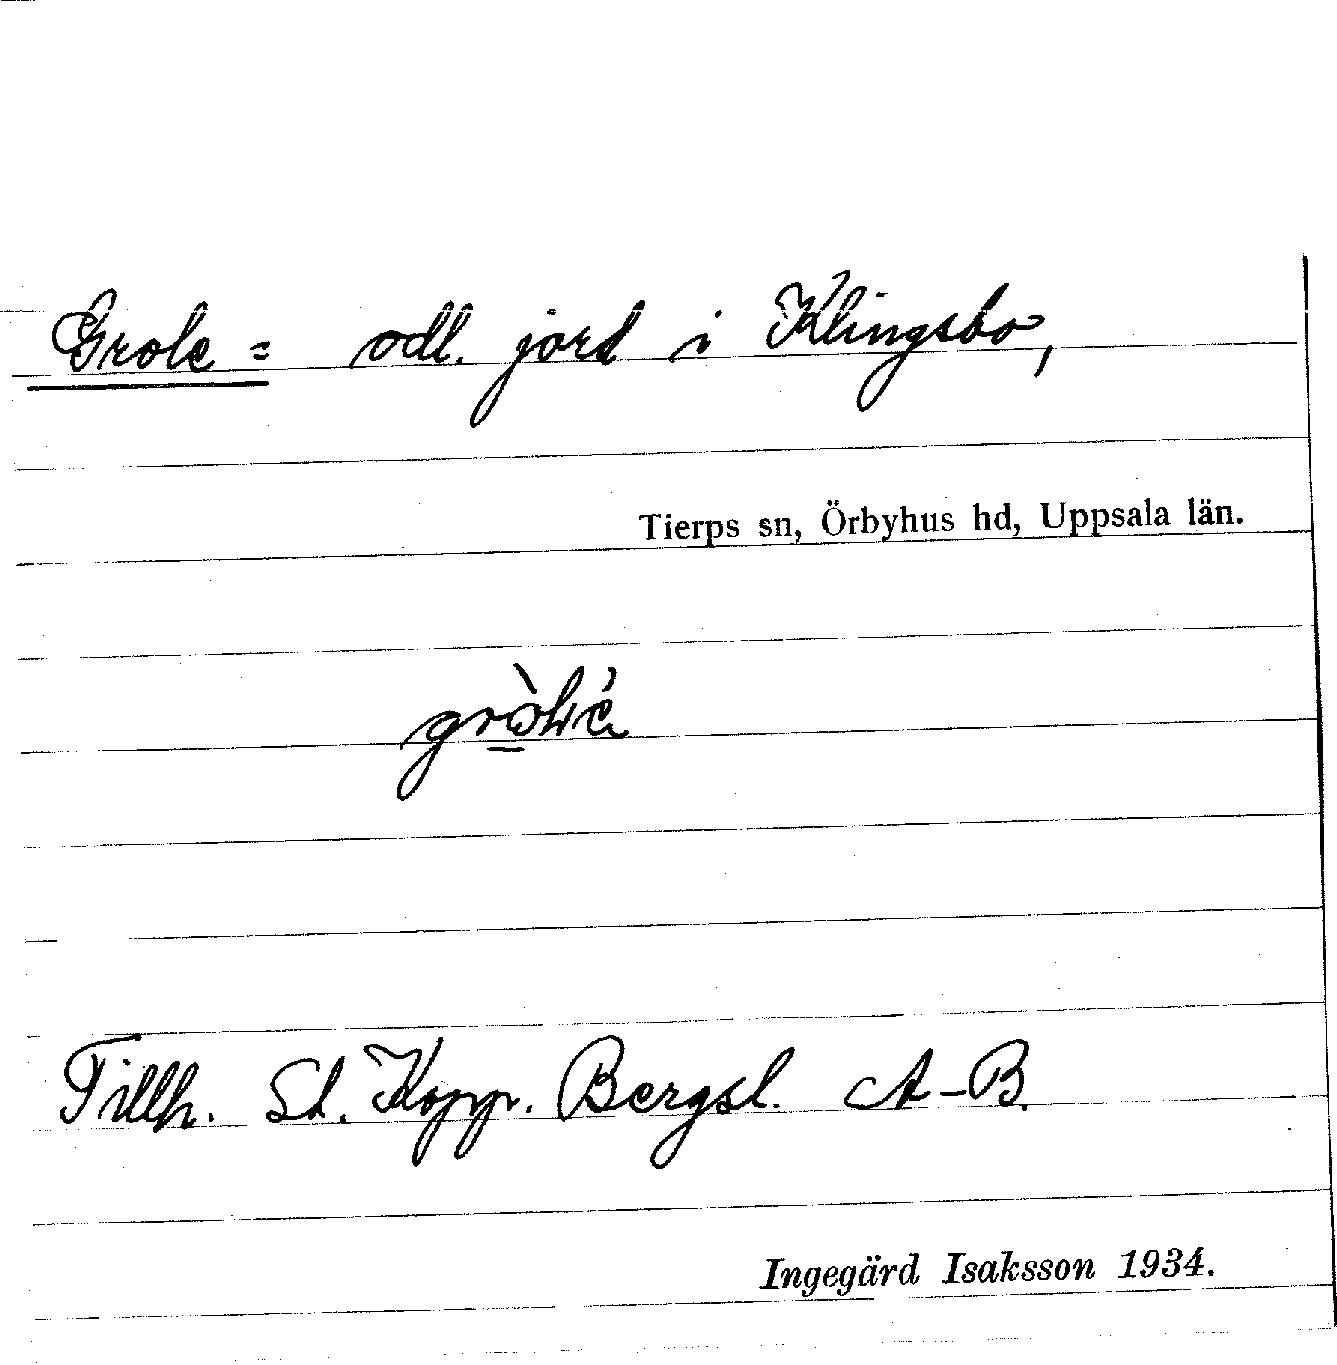 Grole = odl. jord i Klingsbo,
Tierps sn, Örbyhus hd, Uppsala län.
Tillh. St. Kopp. Bergsl. A-B.
Ingegärd Isaksson 1934.